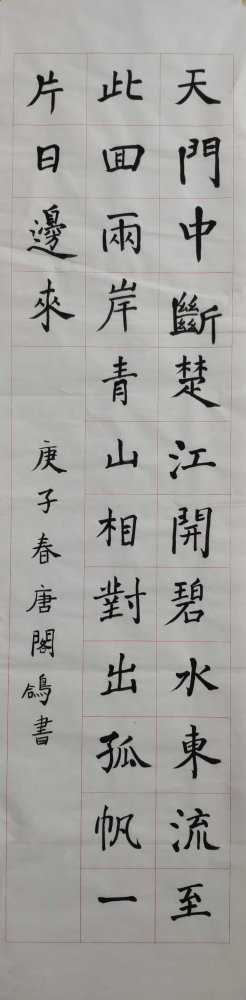 天門中斷楚江開碧水東流至
此回兩岸青山相對出孤帆一
片日邊來
庚子春唐閣鴿書